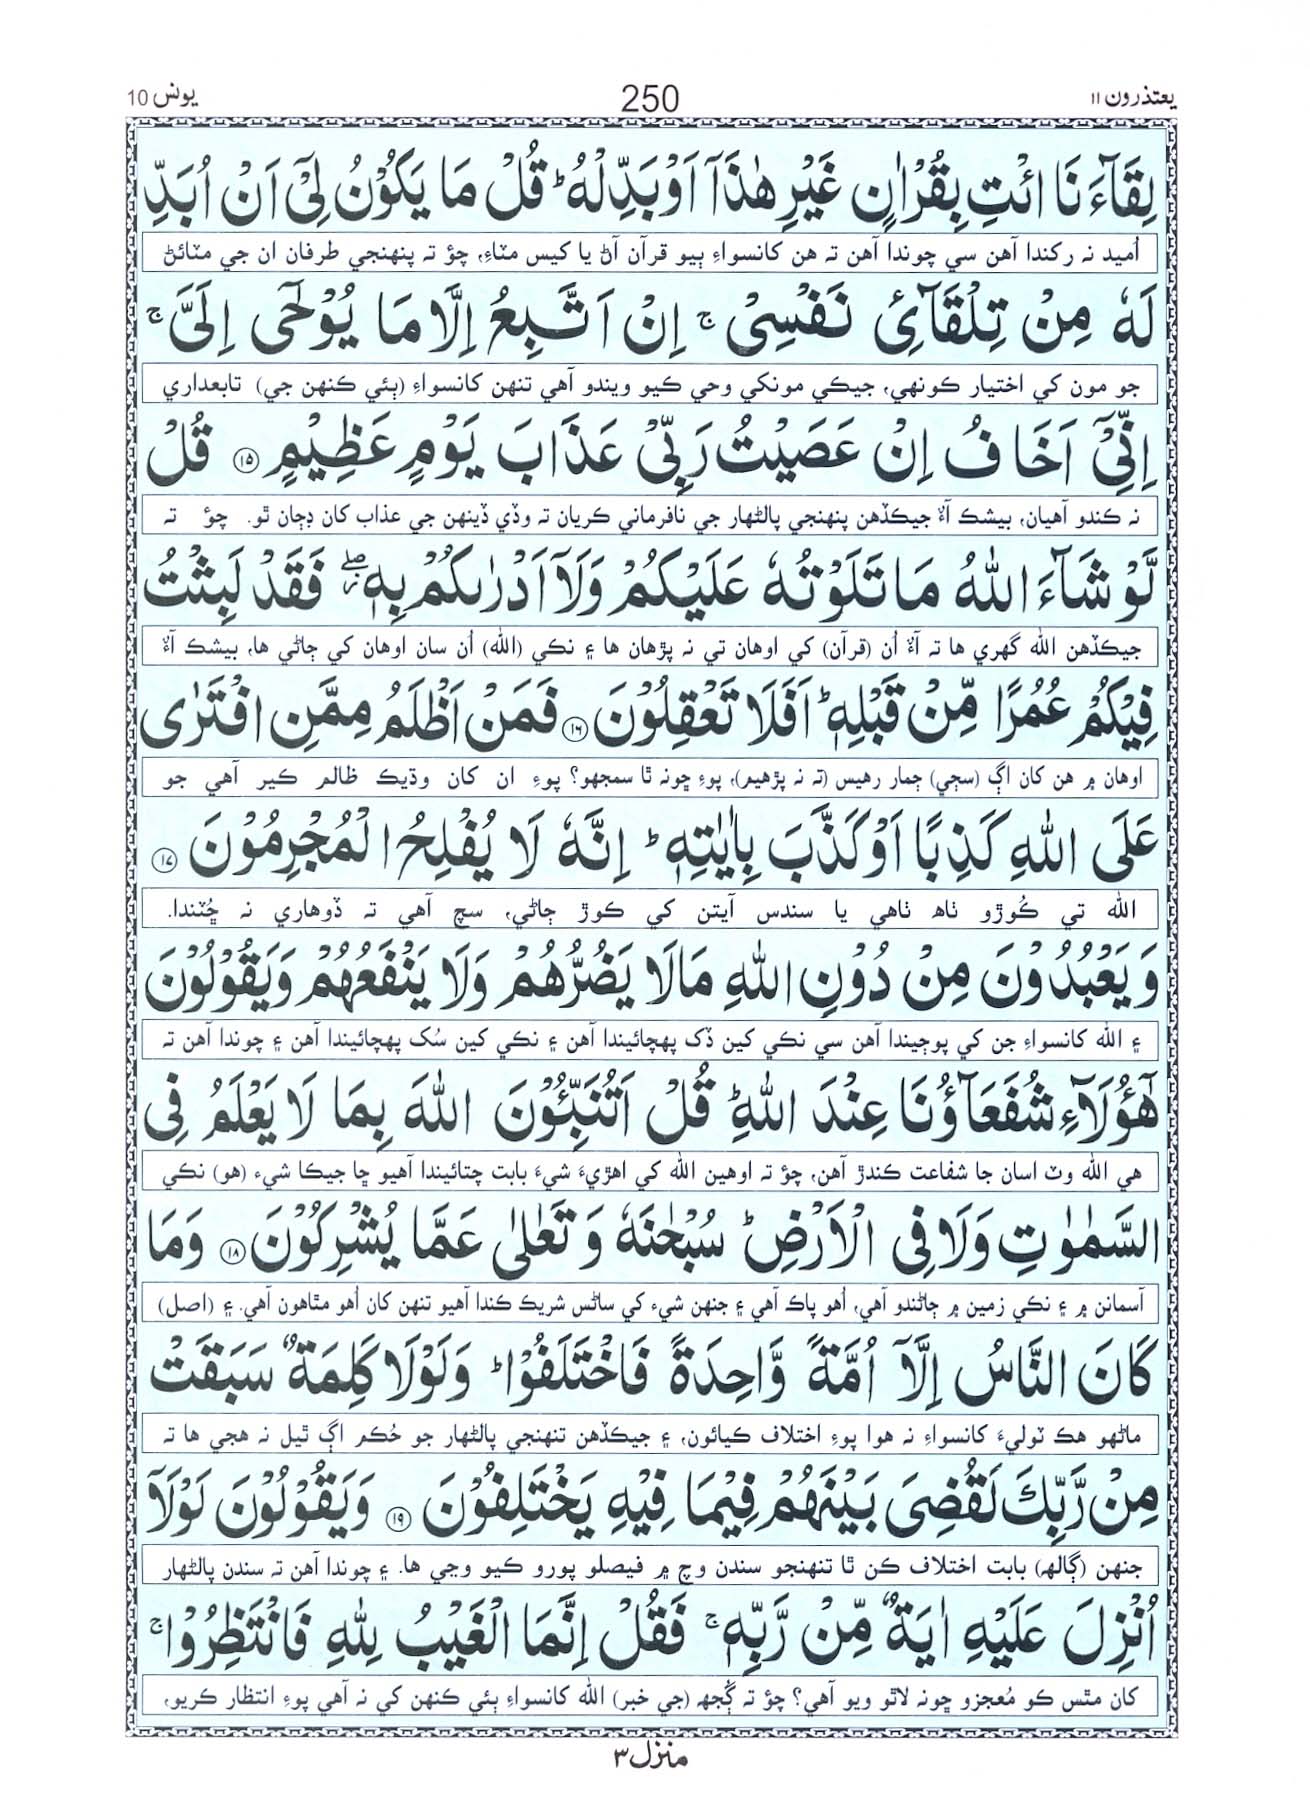 يعتذرون ١١
250
يونس 10
لِقَآءَنَا ائْتِ بِقُرْاٰنٍ غَيْرِ هٰذَآ اَوْ بَدِّلْهُ ؕ قُلْ مَا يَكُوْنُ لِيْٓ اَنْ اُبَدِّ
اُميد نہ رکندا آهن سي چوندا آهن تہ هن کانسواءِ ٻيو قرآن آڻ يا کيس مٽاءِ، چؤ تہ پنھنجي طرفان ان جي مٽائڻ
لَهٗ مِنْ تِلْقَآئِ نَفْسِيْ ۚ اِنْ اَتَّبِعُ اِلَّا مَا يُوْحٰٓى اِلَيَّ ۚ
جو مون کي اختيار ڪونھي، جيڪي مونکي وحي ڪيو ويندو آهي تنھن کانسواءِ (ٻئي ڪنھن جي) تابعداري
اِنِّيْٓ اَخَافُ اِنْ عَصَيْتُ رَبِّيْ عَذَابَ يَوْمٍ عَظِيْمٍ ﴿١٥﴾ قُلْ
نہ ڪندو آهيان، بيشڪ آءٌ جيڪڏهن پنھنجي پالڻھار جي نافرماني ڪريان تہ وڏي ڏينھن جي عذاب کان ڊڄان ٿو. چؤ تہ
لَّوْ شَآءَ اللّٰهُ مَا تَلَوْتُهٗ عَلَيْكُمْ وَلَآ اَدْرٰىكُمْ بِهٖ ۖز فَقَدْ لَبِثْتُ
جيڪڏهن الله گھري ها تہ آءٌ اُن (قرآن) کي اوهان تي نہ پڙهان ها ۽ نڪي (الله) اُن سان اوهان کي ڄاڻي ها، بيشڪ آءٌ
فِيْكُمْ عُمُرًا مِّنْ قَبْلِهٖ ؕ اَفَلَا تَعْقِلُوْنَ ﴿١٦﴾ فَمَنْ اَظْلَمُ مِمَّنِ افْتَرٰى
اوهان ۾ هن کان اڳ (سڄي) ڄمار رهيس (تہ نہ پڙهيم)، پوءِ ڇونہ ٿا سمجھو؟ پوءِ ان کان وڌيڪ ظالم ڪير آهي جو
عَلَى اللّٰهِ كَذِبًا اَوْ كَذَّبَ بِاٰيٰتِهٖ ؕ اِنَّهٗ لَا يُفْلِحُ الْمُجْرِمُوْنَ ﴿١٧﴾
الله تي ڪُوڙو ٺاھ ٺاهي يا سندس آيتن کي ڪوڙ ڄاڻي، سچ آهي تہ ڏوهاري نہ ڇُٽندا.
وَيَعْبُدُوْنَ مِنْ دُوْنِ اللّٰهِ مَا لَا يَضُرُّهُمْ وَلَا يَنْفَعُهُمْ وَيَقُوْلُوْنَ
۽ الله کانسواءِ جن کي پوڄيندا آهن سي نڪي کين ڏک پھچائيندا آهن ۽ نڪي کين سُک پھچائيندا آهن ۽ چوندا آهن تہ
هٰٓؤُلَآءِ شُفَعَآؤُنَا عِنْدَ اللّٰهِ ؕ قُلْ اَتُنَبِّـُٔوْنَ اللّٰهَ بِمَا لَا يَعْلَمُ فِي
هي الله وٽ اسان جا شفاعت ڪندڙ آهن، چؤ تہ اوهين الله کي اهڙيءَ شيءَ بابت چتائيندا آهيو ڇا جيڪا شيء (هو) نڪي
السَّمٰوٰتِ وَلَا فِي الْاَرْضِ ؕ سُبْحٰنَهٗ وَتَعٰلٰى عَمَّا يُشْرِكُوْنَ ﴿١٨﴾ وَمَا
آسمانن ۾ ۽ نڪي زمين ۾ ڄاڻندو آهي، اُهو پاڪ آهي ۽ جنھن شيء کي ساڻس شريڪ ڪندا آهيو تنھن کان اُهو مٿاهون آهي. ۽ (اصل)
كَانَ النَّاسُ اِلَّآ اُمَّةً وَّاحِدَةً فَاخْتَلَفُوْا ؕ وَلَوْلَا كَلِمَةٌ سَبَقَتْ
ماڻھو هڪ ٽوليءَ کانسواءِ نہ هوا پوءِ اختلاف ڪيائون، ۽ جيڪڏهن تنھنجي پالڻھار جو حُڪم اڳ ٿيل نہ هجي ها تہ
مِنْ رَّبِّكَ لَقُضِيَ بَيْنَهُمْ فِيْمَا فِيْهِ يَخْتَلِفُوْنَ ﴿١٩﴾ وَيَقُوْلُوْنَ لَوْلَآ
جنھن (ڳالھ) بابت اختلاف ڪن ٿا تنھنجو سندن وچ ۾ فيصلو پورو ڪيو وڃي ها. ۽ چوندا آهن تہ سندن پالڻھار
اُنْزِلَ عَلَيْهِ اٰيَةٌ مِّنْ رَّبِّهٖ ۚ فَقُلْ اِنَّمَا الْغَيْبُ لِلّٰهِ فَانْتَظِرُوْا ۚ
کان مٿس ڪو مُعجزو ڇونہ لاٿو ويو آهي؟ چؤ تہ ڳُجھ (جي خبر) الله کانسواءِ ٻئي ڪنھن کي نہ آهي پوءِ انتظار ڪريو،
منزل ٣